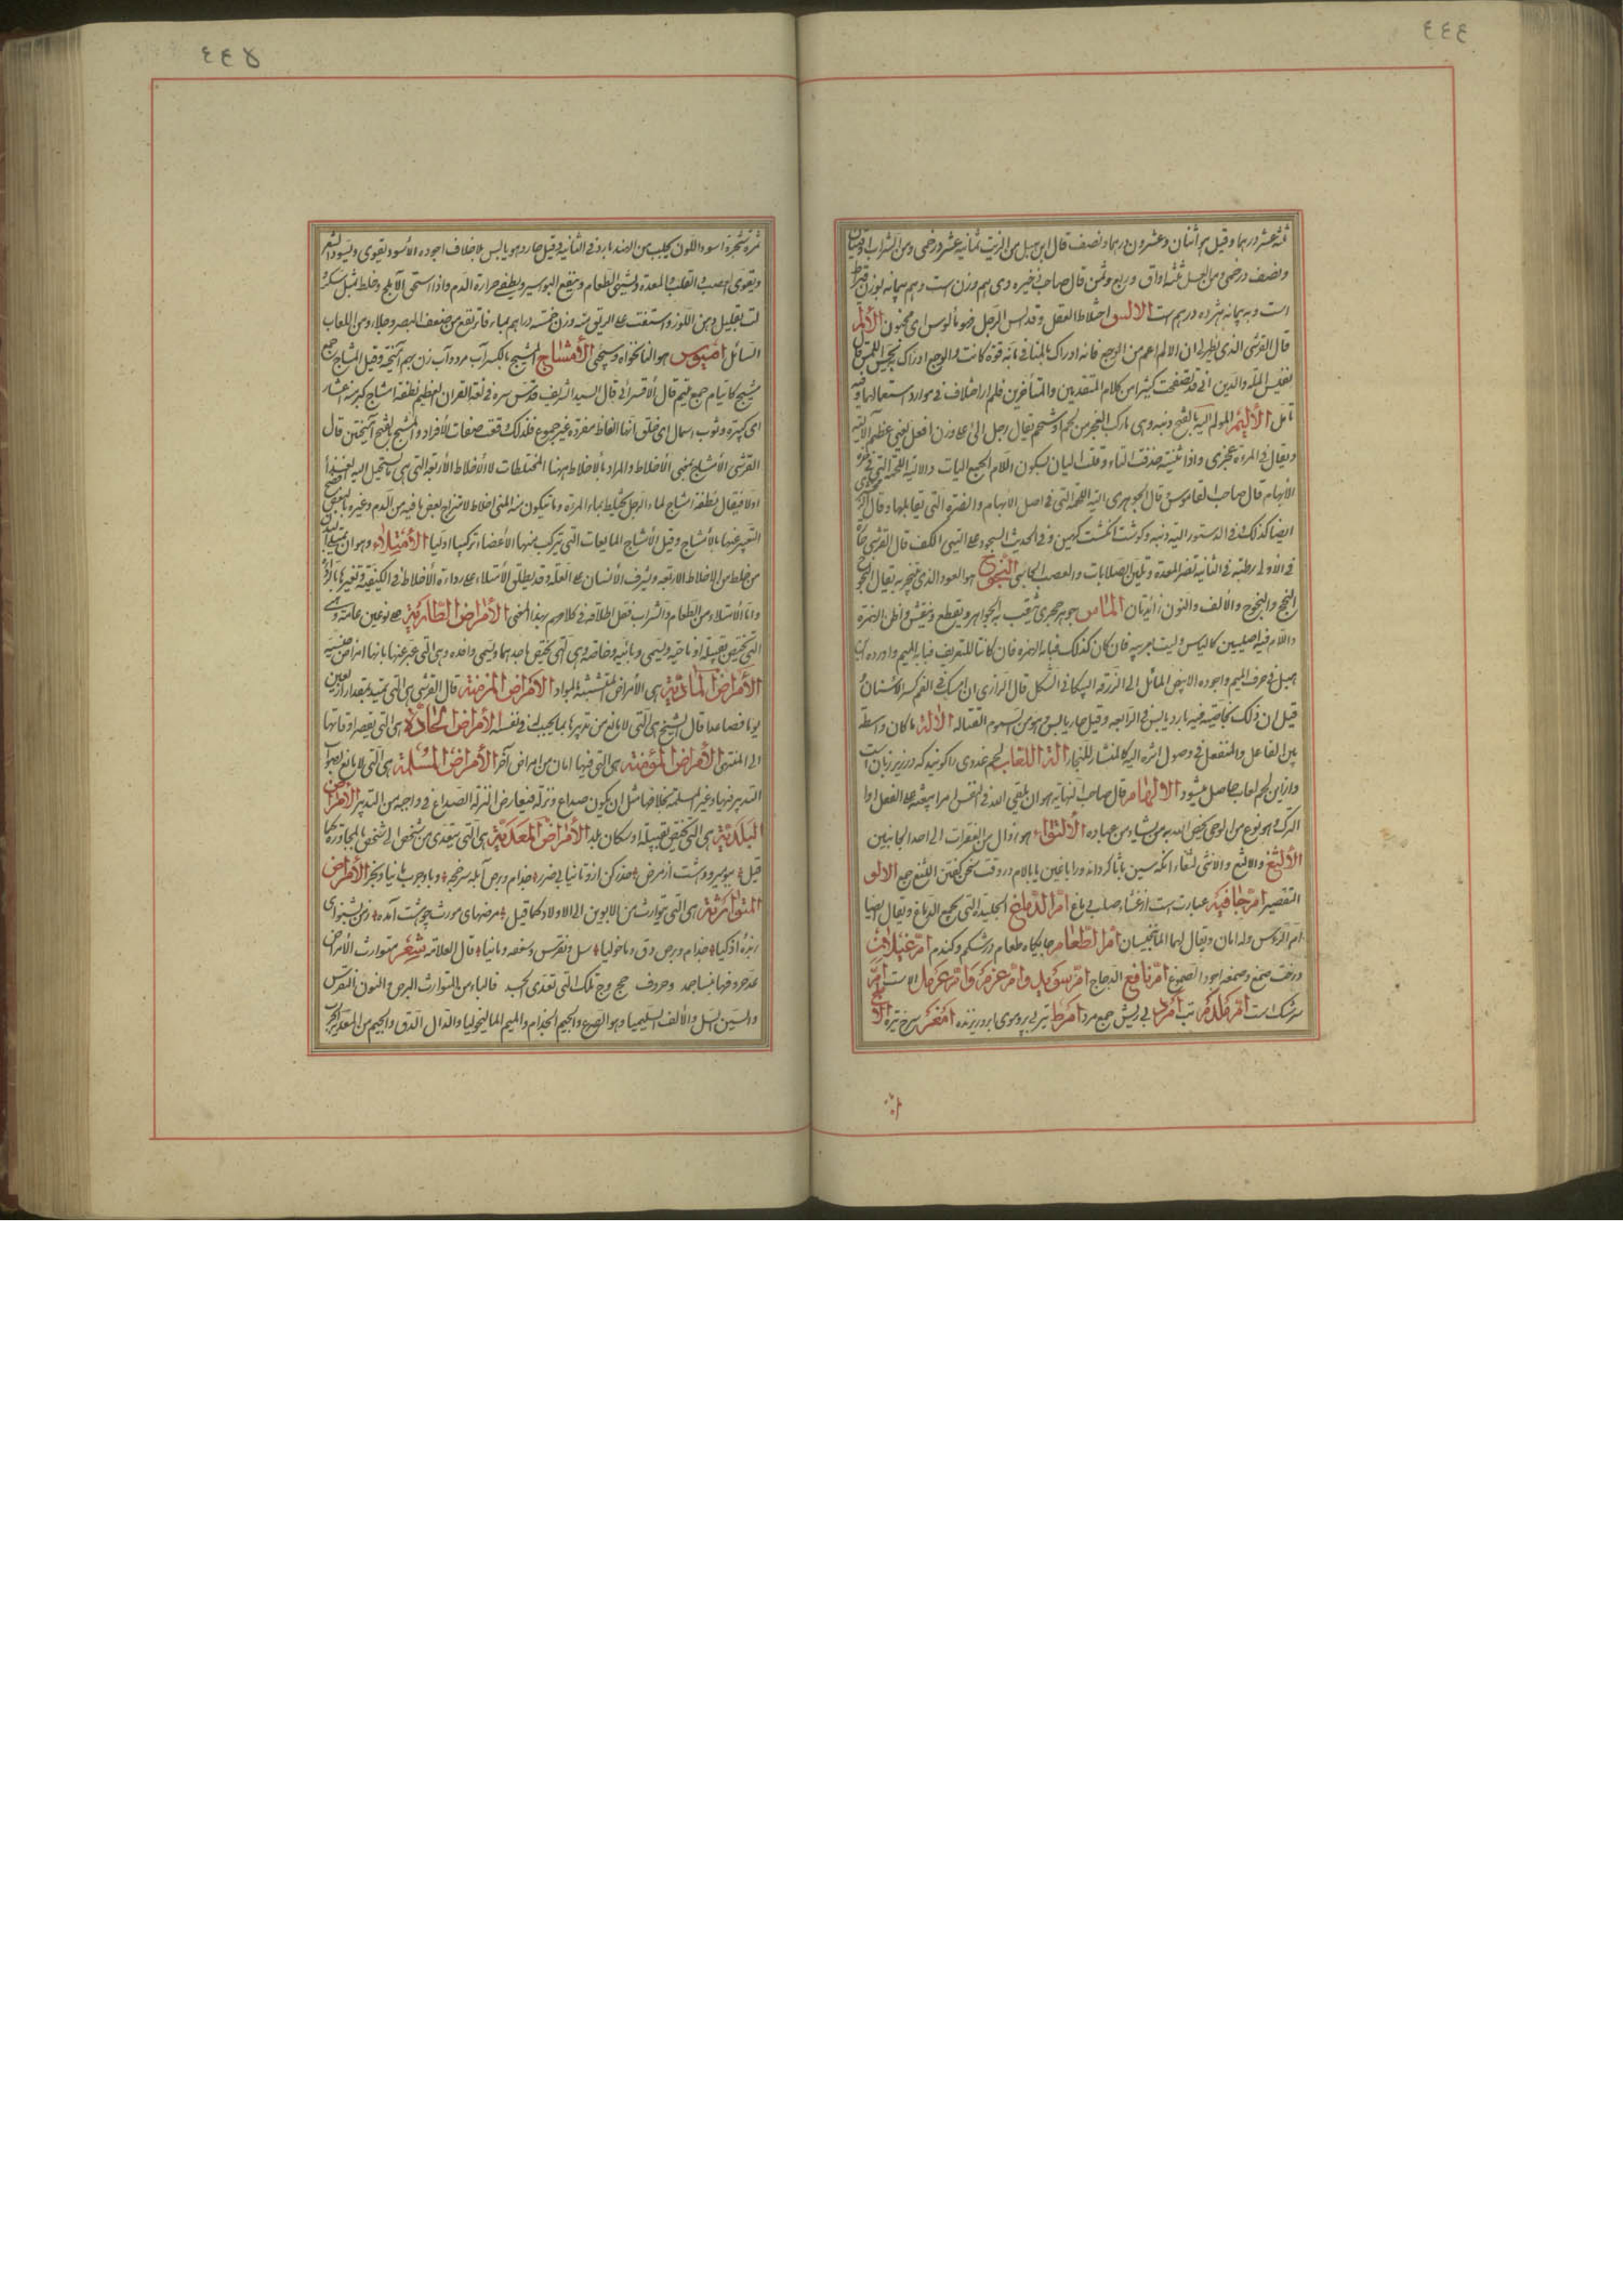 ٤٤٤
ثلثة عشر درهما وقيل هو اثنان وعشرون درهما ونصف قال ابن هبل من الزيت ثمانية عشر درخمى ومن الشراب
ونصف درخمى ومن العسل ثلثة اواق وربع وثمن قال صاحب ذخيره وى هم وزن است وهم پيمانه بوزن
است وبه پيمانه هژده درهم است الالس اختلاط العقل وقد الس الرجل فهو مألوس اى مجنون الألم
قال القرشى الذى يظهر لى ان الالم اعم من الوجع فانه ادراك بالمنافى باية قوة كانت والوجع ادراك بحس اللمس قال
نفيس الملة والدين انى قد تصفحت كثيرا من كلام المتقدمين والمتأخرين فلم ار اختلاف فى موارد استعمالهما وفيه
تامل الأليم المولم الية بالفتح دنبه وهى ماركب العجز من لحم او شحم يقال رجل الى على وزن افعل يعنى عظم الالية
ويقال فى المرءة عجزى واذا ثنيته حذفت التاء وقلت اليان بسكون اللام الجمع اليات والالية اللحمة التى فى
الابهام قال صاحب القاموس قال الجوهرى الية اللحمة التى فى اصل الابهام والضرة التى تقابلها وقال
ايضا كذلك فى الدستور الية دنبه وكوشت انكشت كهين وفى الحديث السجود على اليتى الكف قال القرشى
فى الاولى رطبة فى الثانية تضر المعدة وتلين الصلابات والعصب الجاسى النجوج هو العود الذى يتبخر به يقال
النجج والينجوج والألف والنون زائدتان الماس جوهر حجرى يثقب به الجواهر ويقطع وينقش واظن الهمزة
واللام فيه اصليين كالياس وليست بعربيه فان كان كذلك فبابه الهمزه فان كانتا للتعريف فبابه الميم واورده
هبل فى حرف الميم واجوده الابيض المائل الى الزرقه البيكانى الشكل قال الرازى ان امسك فى الفم كسر الاسنان
قيل ان ذلك بخاصية فيه بارد يابس فى الرابعه وقيل حار يابس وهو من السموم القتاله الالة ما كان واسطة
بين الفاعل والمنفعل فى وصول اثره اليه كالمنشار للنجار الة اللعاب لحم غددى را كويند كه در زير زبان است
وازاين لحم لعاب حاصل ميشود الالهام قال صاحب النهاية هو ان يلقى الله فى النفس امرا يبعثه على الفعل او
الترك وهو نوع من الوحى يخص الله به من يشاء من عباده الألتواء هو زوال من الفقرات الى احد الجانبين
الألثغ والالثع والانثى لثغاء انكه سين با ثا كرداند ورا با غين يا بالام در وقت سخن كفتن اللثغ جمع الالو
التقصير ام جافيه عبارت است از غشاء صلب دماغ ام الدماغ الجليدة التى تجمع الدماغ ويقال لها
ام الرأس ولها امان ويقال لهما المانخيسان ام الطعام جايكاه طعام در شكم وكندم ام غيلان
درخت صمغ وصمغه اجود الصموغ ام نافع الدجاج ام سويد وام عزم وام عزمل الاست
سرشك است ام ملدم تب امرد بى ريش جمع مرد امرط تير بى پر وموى ابرو ريزنده امغر سرخ تيره
٤٤٥
ثمرة شجرة اسود اللون يجلب من الهند بارد فى الثانية وقيل حار وهو يابس بلا خلاف اجوده الأسود يقوى ويسود الشعر
ويقوى العصب والقلب والمعدة ويشهى الطعام وينفع البواسير ويطفى حرارة الدم واذا استحق الآملج وخلط بمثل سكر
لت بقليل دهن اللوز واستفت على الريق منه وزن خمسة دراهم بماء فاتر نفع من ضعف البصر وجلاء ومن اللعاب
السائل اميوس هو النانخواه وسيجئ الأمشاج المشيج بالكسر آب مرد وآب زن بهم آميخته وقيل المشاج جمع
مشيج كأيتام جمع يتيم قال الاقسرائى قال السيد الشريف قدس سره فى لغة القران العظيم نطفة امشاج كبرمة اعشار
اى كبيرة وثوب اسمال اى خلق انها الفاظ مفردة غير جموع فلذلك وقعت صفات للأفراد والمشج بالفتح آميختن قال
القرشى الأمشاج بمعنى الأخلاط والمراد بالاخلاط ههنا المختلطات لا الأخلاط الأربعة التى هى يستحيل اليه الغذاء
اولا فيقال نطفة امشاج لماء الرجل يختلط بماء المرئة وما يتكون منه المنى اخلاط لامتزاج بعض ما فيه من الدم وغيره بالبعض
التعبير عنها بالأمشاج وقيل الأمشاج المايعات التى يتركب منها الأعضاء تركيبا اوليا الأمتلاء وهو ان يمتلى
من خلط من الاخلاط الاربعة ويشرف الأنسان على العلة وقد يطلق الامتلاء على رداءة الأخلاط فى الكيفية وتغيرها
واما الامتلاء من الطعام والشراب فقل اطلاقه فى كلامهم بهذا المعنى الأمراض الطارية هى نوعين عامة وهى
التى تختص بقبيلة او ناحية ويسمى وبائية وخاصة وهى التى تختص باحدهما ويسمى وافده وهى التى عبر عنها بانها امراض
الأمراض المادية هى الأمراض المتشبثة بالمواد الأمراض المزمنة قال القرشى هى التى يمتد بمقدار اربعين
يوما فصاعدا قال الشيخ هى التى لا مانع من تدبيرها بما يجب فى نفسه الأمراض الحادة هى التى يقصر اوقاتها
الى المنتهى الأمراض المؤمنة هى التى فيها امان من امراض اخر الأمراض المسلمة هى التى لا مانع لصواب
التدبير فيها وغير المسلمة بخلافها مثل ان يكون صداع ونزلة فيعارض النزلة الصداع فى واجبه من التدبير الأمراض
البلدية هى التى تختص بقبيلة او سكان بلد الأمراض المعدية هى التى يتعدى من شخص الى شخص بالمجاورة كما
قيل هشت از مرض حذر كن ازو تا نيابى ضرر جذام وبرص آبله سرخجه وبا وجرب با نيا وبخر الأمراض
المتوارثة هى التى يتوارث من الابوين الى الاولاد كما قيل مرضهاى موروث چو هشت آمده زمن بشنو اى
زبدة اذكيا جذام وبرص دق وماخوليا سل ونقرس وسعفه ومانيا قال العلامه شعر متوارث الأمراض
عد حروفها بنساجمد وحروف حج وج تلك التى تعدى الجسد فالباء من التوارث البرص والنون النقرس
والسين السل والألف السليميا وهو الصرع والجيم الجذام والميم الماليخوليا والدال الدق والجيم من المعدية